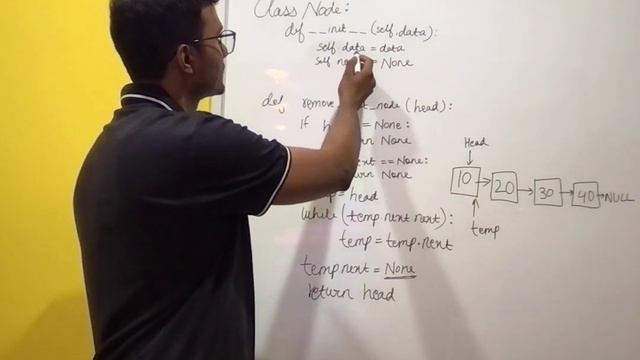 Class Node:
def __init__(self,data):
self data = data
self = None
def remove _node (head):
If = None:
None
== None:
None
= head
While (temp.next.next):
temp = temp.next
temp.next = None
return head
Head
10 20 30 40 NULL
temp